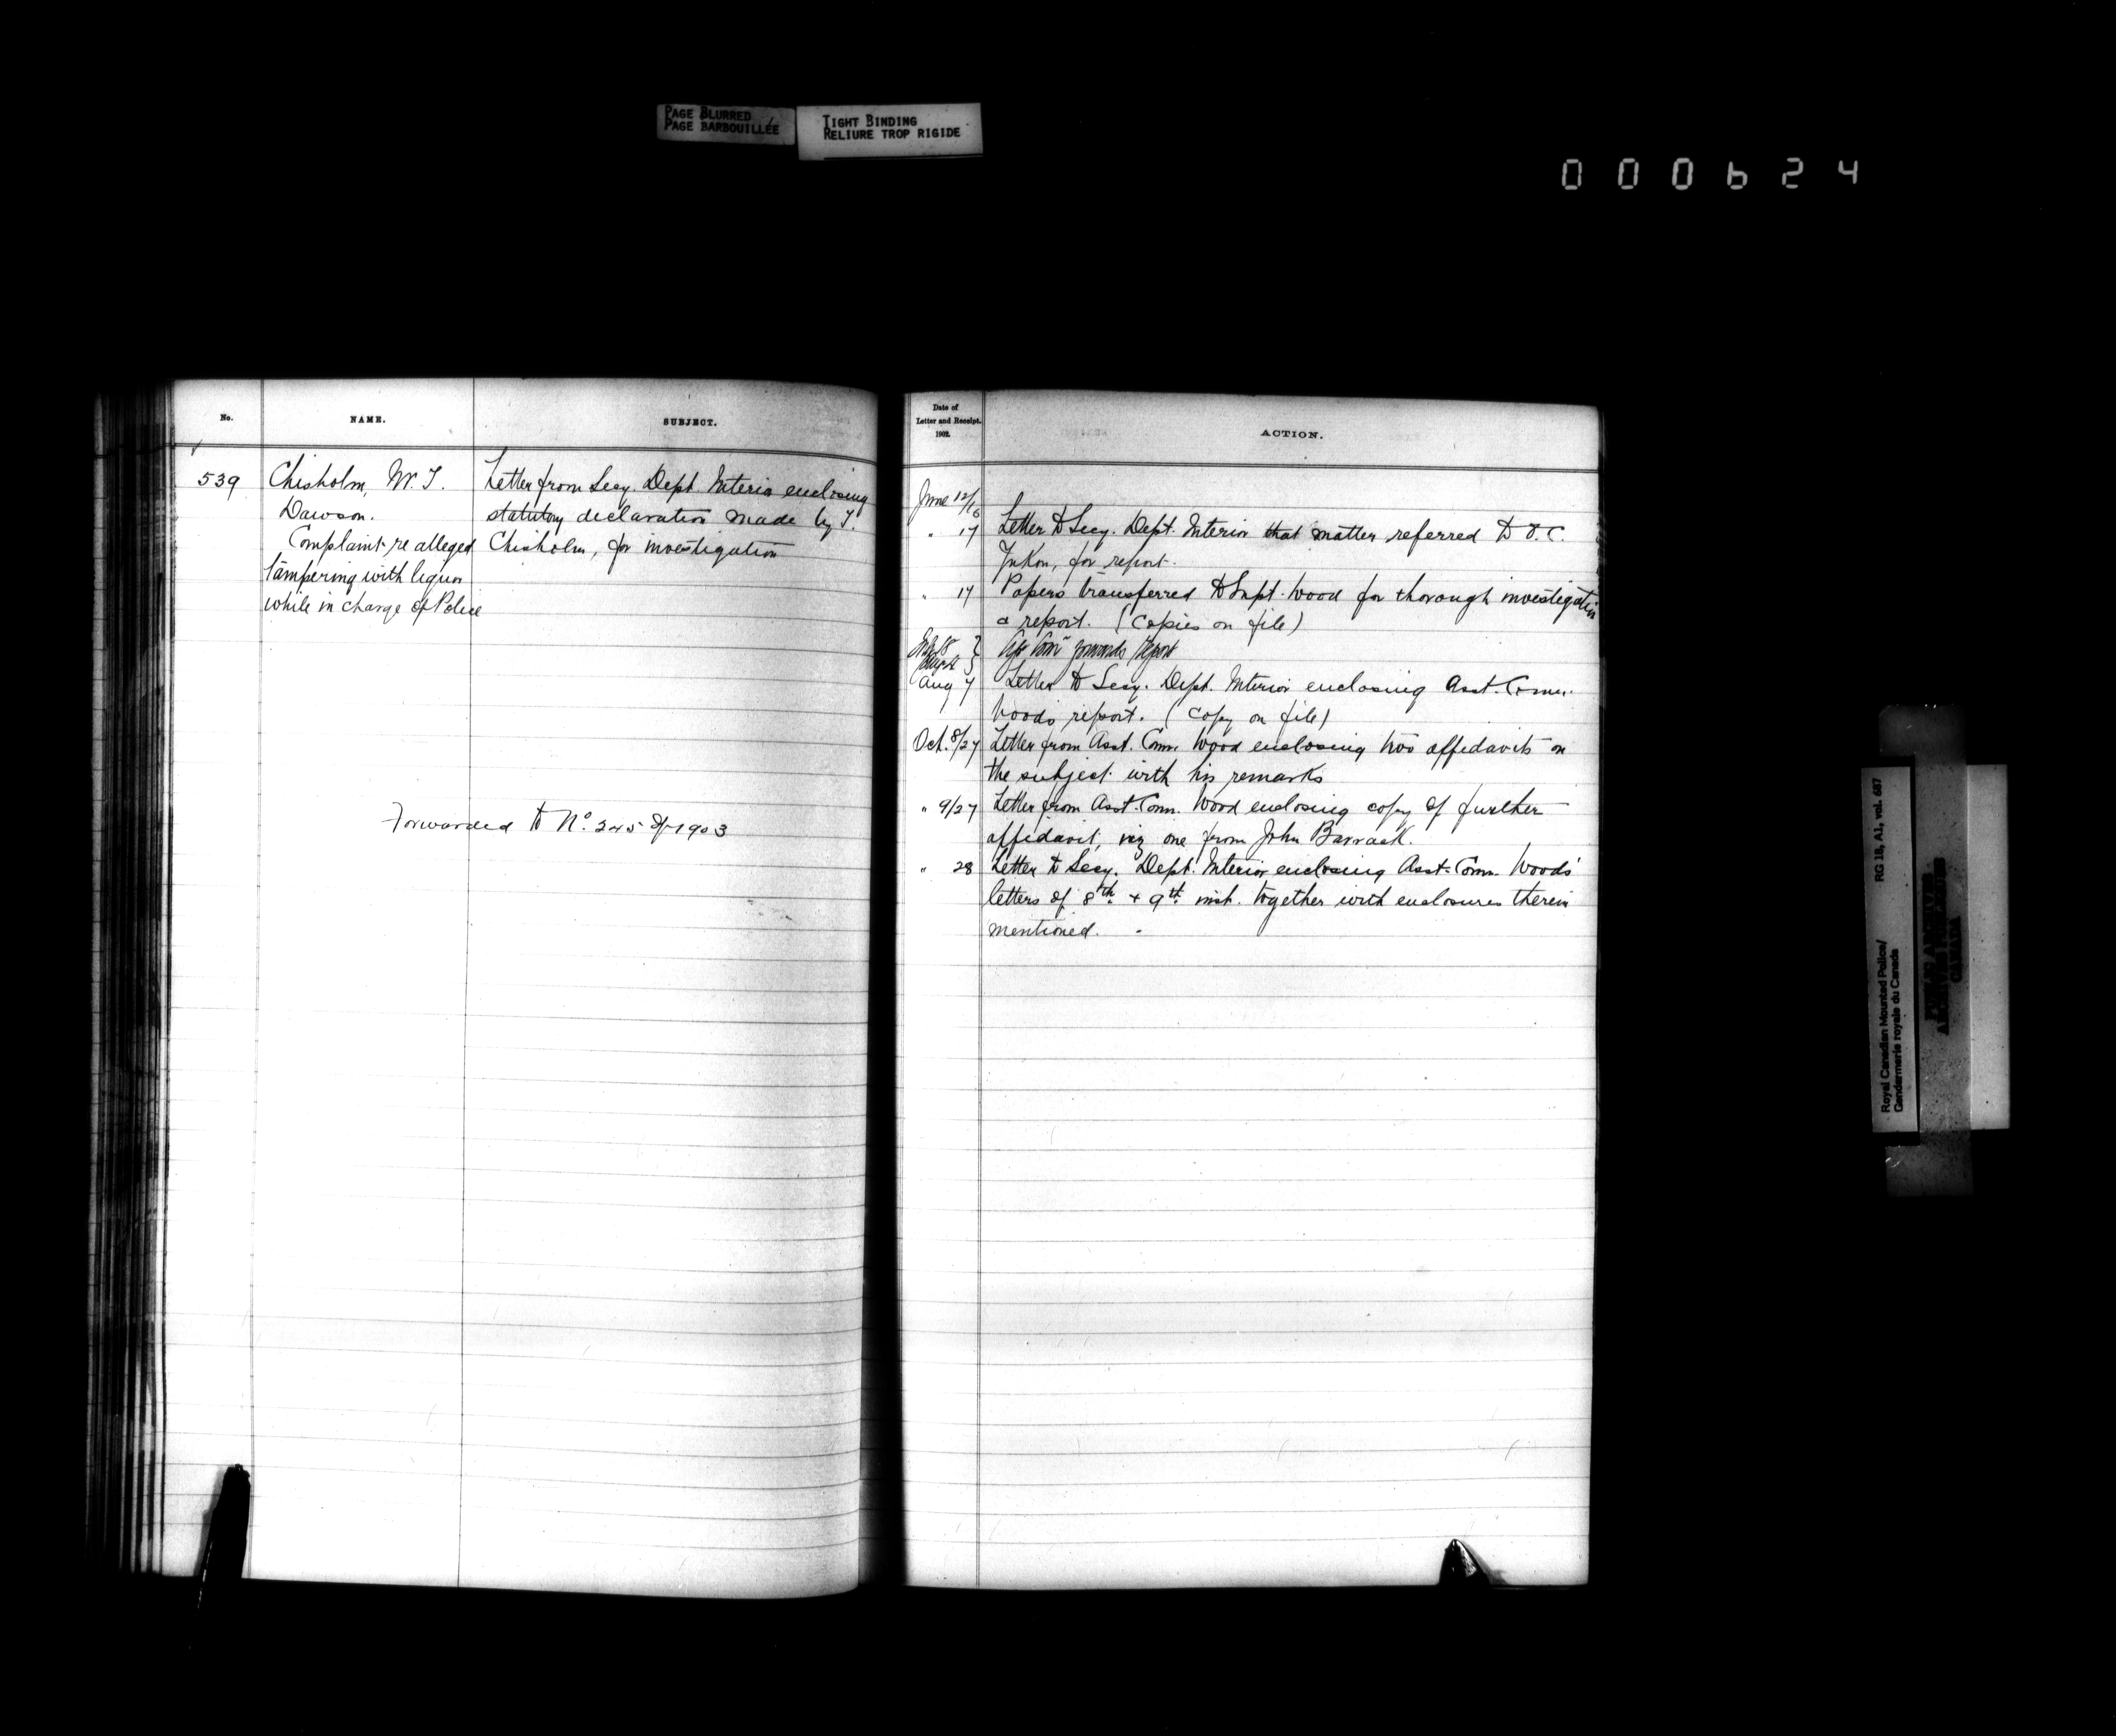 PAGE BLURRED
PAGE BARBOUILLÉE
TIGHT BINDING
RELIURE TROP RIGIDE
000624
No.
NAME.
SUBJECT.
539
Chisholm, W. T.
Dawson.
Complaint re alleged
tampering with liquor
while in charge of Police
Letter from Secy. Dept. Interior enclosing
statutory declaration made by T.
Chisholm, for investigation
Forwarded to No. 245 of 1903
Date of
Letter and Receipt.
1902.
ACTION.
June 12/16
" 17 Letter to Secy. Dept. Interior that matter referred to O.C.
Yukon, for report.
" 17 Papers transferred to Supt. Wood for thorough investigation
& report. (Copies on file)
forwards report
Aug 7 Letter to Secy. Dept. Interior enclosing Asst. Comr.
Woods report. (Copy on file)
Oct. 8/27 Letter from Asst. Comr. Wood enclosing two affidavits on
the subject with his remarks
" 9/27 Letter from Asst. Comr. Wood enclosing copy of further
affidavit, viz one from John Barrack.
" 28 Letter to Secy. Dept. Interior enclosing Asst. Comr. Woods'
letters of 8th & 9th inst. together with enclosures therein
mentioned.
RG 18, A1, vol. 687
Royal Canadian Mounted Police/
Gendarmerie royale du Canada
PUBLIC ARCHIVES
ARCHIVES PUBLIQUES
CANADA